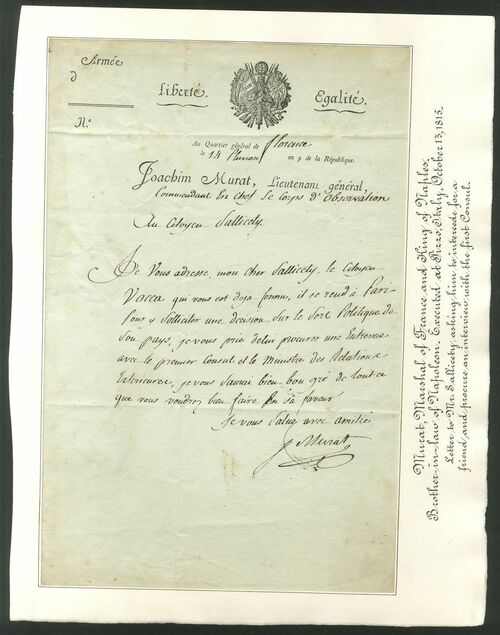 Armée
d
Liberté.
Egalité.
N.º
Au Quartier général de Florence
le 14 Pluviose an 9 de la République.
Joachim Murat, Lieutenant général,
Commandant En Chef Le Corps d'Observation
Au Citoyen Sallicety.
Je Vous adresse, mon cher Sallicety, le Citoyen
Vacca qui vous est deja connu, il se rend à Paris
Pour y Solliciter une decision Sur le Sort Politique de
Son pays, je vous prie de lui procurer une Entrevue
avec le premier Consul et le Ministre des Relations
Exterieures, je vous Saurai bien bon gré de tout ce
que vous voudrez bien faire En Sa faveur
Je vous Salue avec amitié
J Murat
Murat, Marshal of France and King of Naples,
Brother-in-law of Napoleon. Executed at Pizzo, Italy, October 13, 1815.
Letter to Mr. Sallicety asking him to intercede for a
friend, and procure an interview with the first Consul.